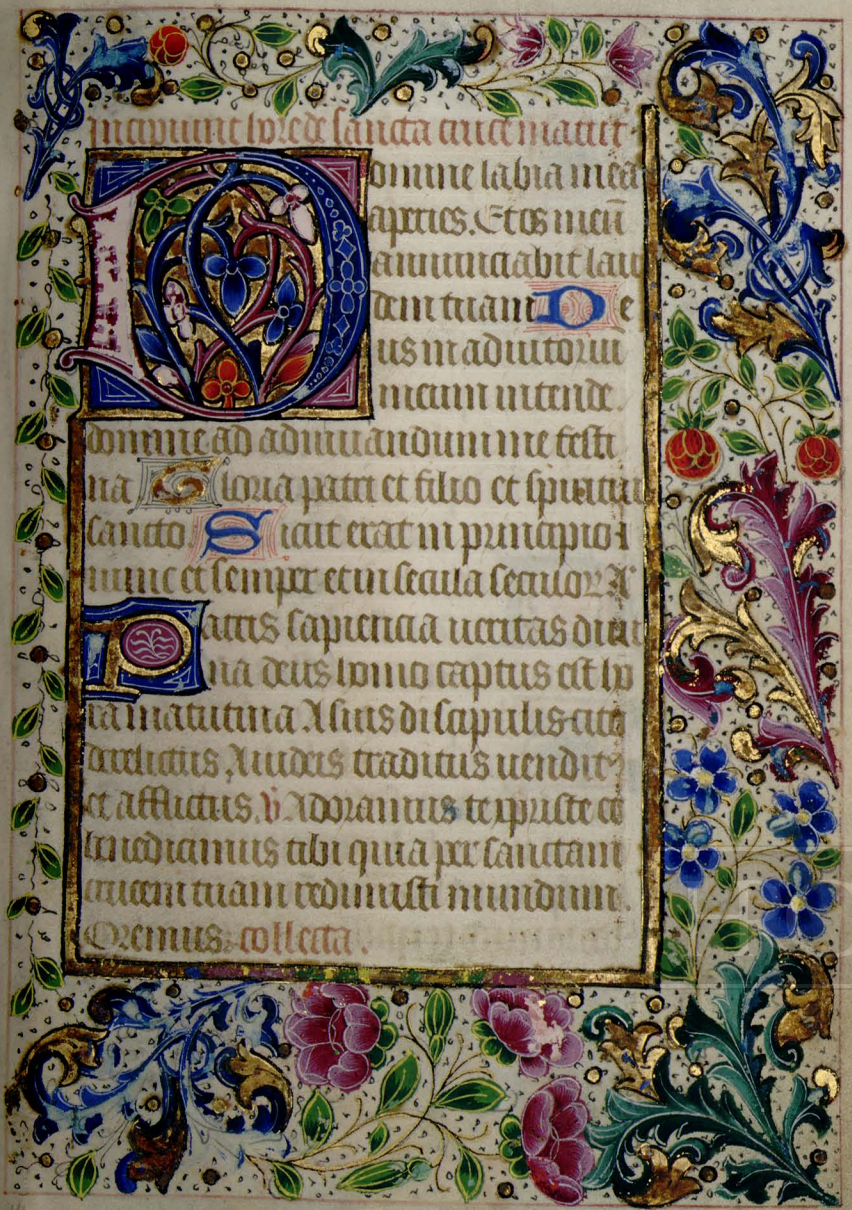 Incipiunt hore de sancta cruce matut
Domine labia mea
aperies. Et os meū
annunciabit lau
dem tuam De
us in adiutoriū
meum intende.
domine ad adiuuandum me festi
na Gloria patri et filio et spiritui
sancto Sicut erat in principio ⁊
nunc et semper et in secula seculoꝝ A
Patris sapiencia ueritas diui
na deus homo captus est ho
ra matutina A suis discipulis cito
derelictus A iudeis traditus uendit
et afflictus. v̄ Adoramus te xpriste et
benedicimus tibi quia per sanctam
crucem tuam redimisti mundum.
Oremus. collecta.